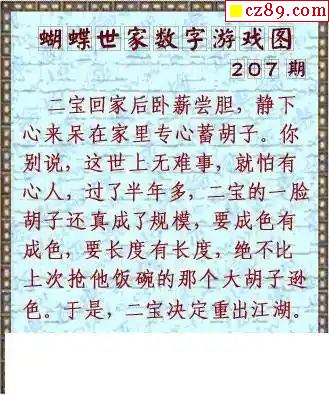 cz89.com
蝴蝶世家数字游戏图
207期
二宝回家后卧薪尝胆，静下
心来呆在家里专心蓄胡子。你
别说，这世上无难事，就怕有
心人，过了半年多，二宝的一脸
胡子还真成了规模，要成色有
成色，要长度有长度，绝不比
上次抢他饭碗的那个大胡子逊
色。于是，二宝决定重出江湖。